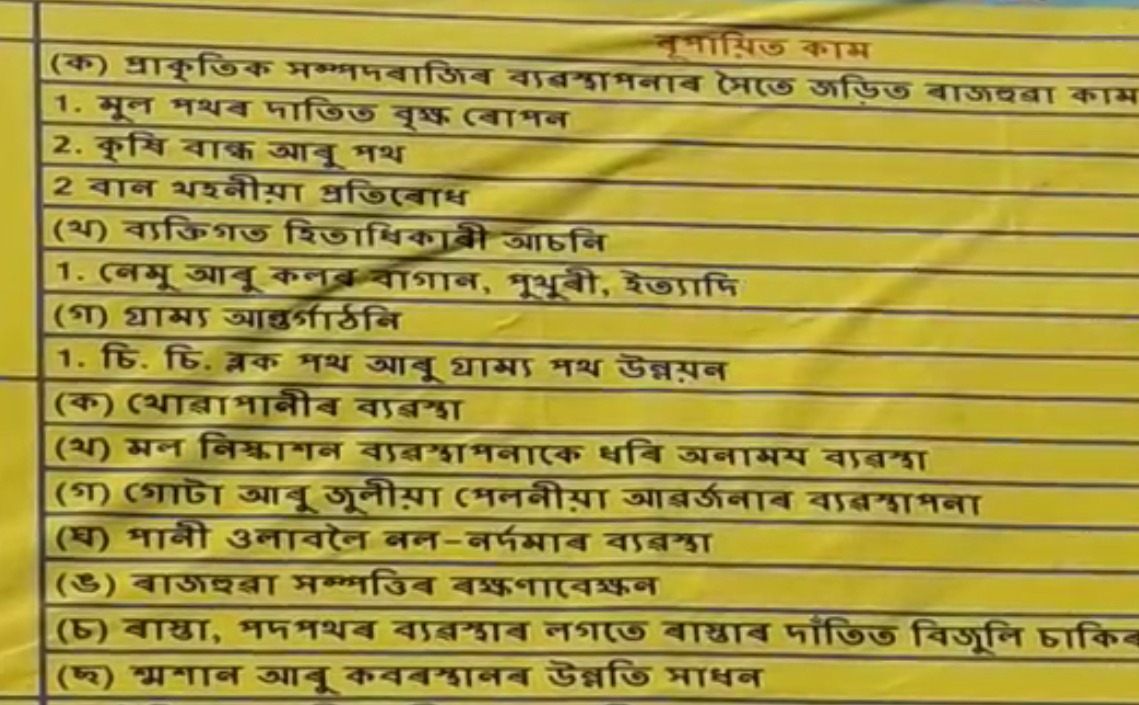 ৰূপায়িত কাম
(ক) প্ৰাকৃতিক সম্পদৰাজিৰ ব্যৱস্থাপনাৰ সৈতে জড়িত ৰাজহুৱা কাম
1. মূল পথৰ দাতিত বৃক্ষ ৰোপন
2. কৃষি বান্ধ আৰু পথ
2 বান থহনীয়া প্ৰতিৰোধ
(খ) ব্যক্তিগত হিতাধিকাৰী আচনি
1. নেমু আৰু কলৰ বাগান, পুখুৰী, ইত্যাদি
(গ) গ্ৰাম্য আন্তৰ্গাঠনি
1. চি. চি. ব্লক পথ আৰু গ্ৰাম্য পথ উন্নয়ন
(ক) খোৱাপানীৰ ব্যৱস্থা
(খ) মল নিস্কাশন ব্যৱস্থাপনাকে ধৰি অনাময ব্যৱস্থা
(গ) গোটা আৰু জুলীয়া পেলনীয়া আৱৰ্জনাৰ ব্যৱস্থাপনা
(ঘ) পানী ওলাবলৈ নল-নৰ্দমাৰ ব্যৱস্থা
(ঙ) ৰাজহুৱা সম্পত্তিৰ ৰক্ষণাবেক্ষন
(চ) ৰাস্তা, পদপথৰ ব্যৱস্থাৰ লগতে ৰাস্তাৰ দাঁতিত বিজুলি চাকিৰ
(ছ) শ্মশান আৰু কবৰস্থানৰ উন্নতি সাধন